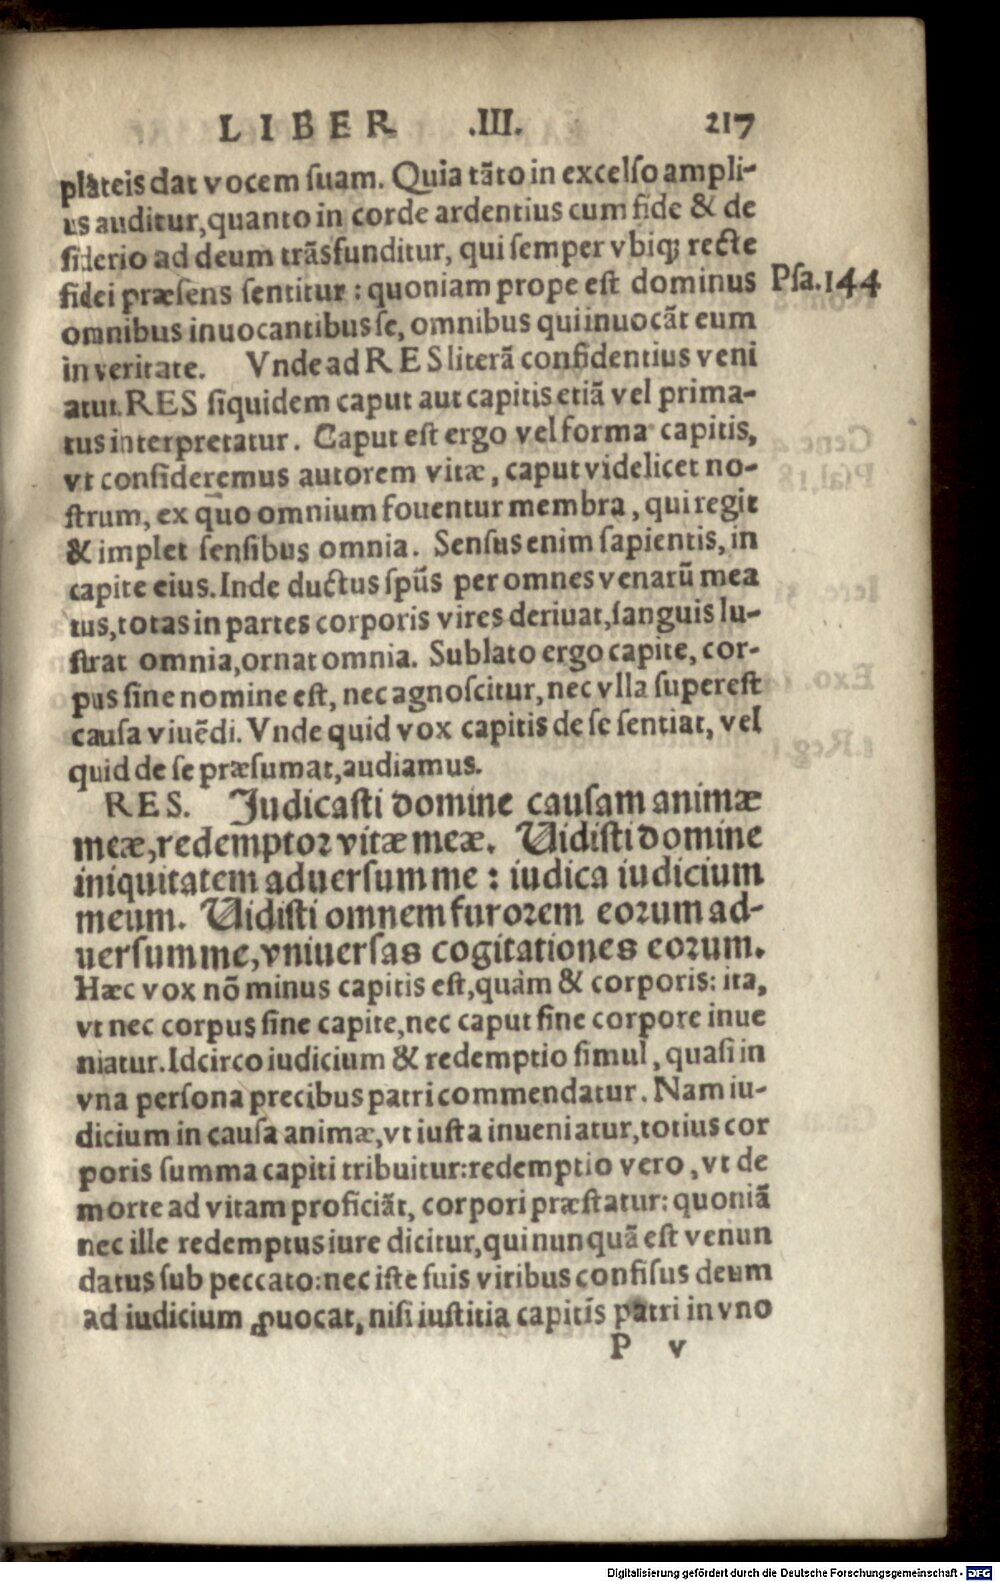 LIBER .III. 217
plateis dat vocem suam. Quia tãto in excelso ampli-
us auditur, quanto in corde ardentius cum fide & de
siderio ad deum trãsfunditur, qui semper vbiq; recte
fidei præsens sentitur: quoniam prope est dominus
Psa.144
omnibus inuocantibus se, omnibus qui inuocãt eum
in veritate. Vnde ad RES literã confidentius veni
atur. RES siquidem caput aut capitis etiã vel prima-
tus interpretatur. Caput est ergo vel forma capitis,
vt consideremus autorem vitæ, caput videlicet no-
strum, ex quo omnium fouentur membra, qui regit
& implet sensibus omnia. Sensus enim sapientis, in
capite eius. Inde ductus spũs per omnes venarũ mea
tus, totas in partes corporis vires deriuat, sanguis lu-
strat omnia, ornat omnia. Sublato ergo capite, cor-
pus sine nomine est, nec agnoscitur, nec vlla superest
causa viuẽdi. Vnde quid vox capitis de se sentiat, vel
quid de se præsumat, audiamus.
RES. Judicasti domine causam animæ
meæ, redemptor vitæ meæ. Uidisti domine
iniquitatem aduersum me: iudica iudicium
meum. Uidisti omnem furorem eorum ad-
uersum me, vniuersas cogitationes eorum.
Hæc vox nõ minus capitis est, quàm & corporis: ita,
vt nec corpus sine capite, nec caput sine corpore inue
niatur. Idcirco iudicium & redemptio simul, quasi in
vna persona precibus patri commendatur. Nam iu-
dicium in causa animæ, vt iusta inueniatur, totius cor
poris summa capiti tribuitur: redemptio vero, vt de
morte ad vitam proficiãt, corpori præstatur: quoniã
nec ille redemptus iure dicitur, qui nunquã est venun
datus sub peccato: nec iste suis viribus confisus deum
ad iudicium ꝓuocat, nisi iustitia capitis patri in vno
P v
Digitalisierung gefördert durch die Deutsche Forschungsgemeinschaft - DFG